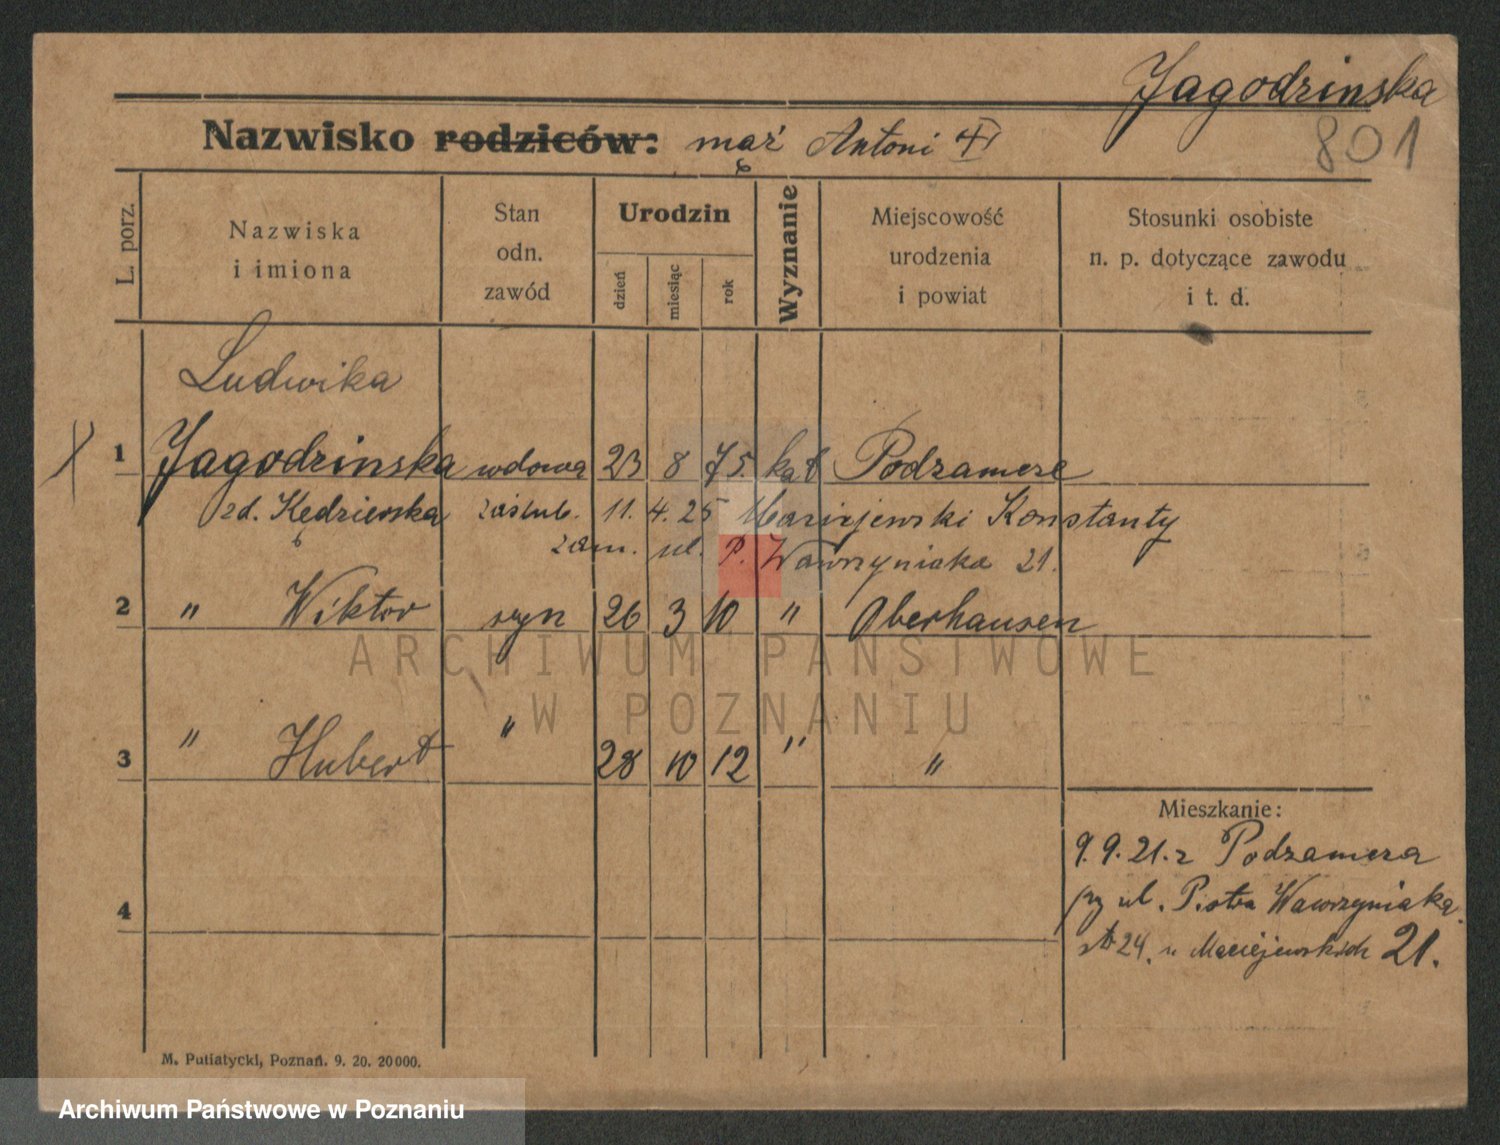 Jagodzinska
801
Nazwisko rodziców: mąż Antoni
L. porz.
Nazwiska i imiona
Stan odn. zawód
Urodzin
dzień
miesiąc
rok
Wyznanie
Miejscowość urodzenia i powiat
Stosunki osobiste n. p. dotyczące zawodu i t. d.
Ludwika
1 Jagodzinska wdowa 23 8 75. kat Podzamcze
zd. Kędzierska zaślub. 11. 4. 25 Maciejewski Konstanty
zam. ul. P. Wawrzyniaka 21.
2 " Wiktor syn 26 3 10 " Oberhausen
ARCHIWUM PAŃSTWOWE
W POZNANIU
3 " Hubert " 28 10 12 " "
Mieszkanie:
9. 9. 21. z Podzamcza
4
przy ul. Piotra Wawrzyniaka
24. u Maciejewskich 21.
M. Putiatycki, Poznań. 9. 20. 20000.
Archiwum Państwowe w Poznaniu